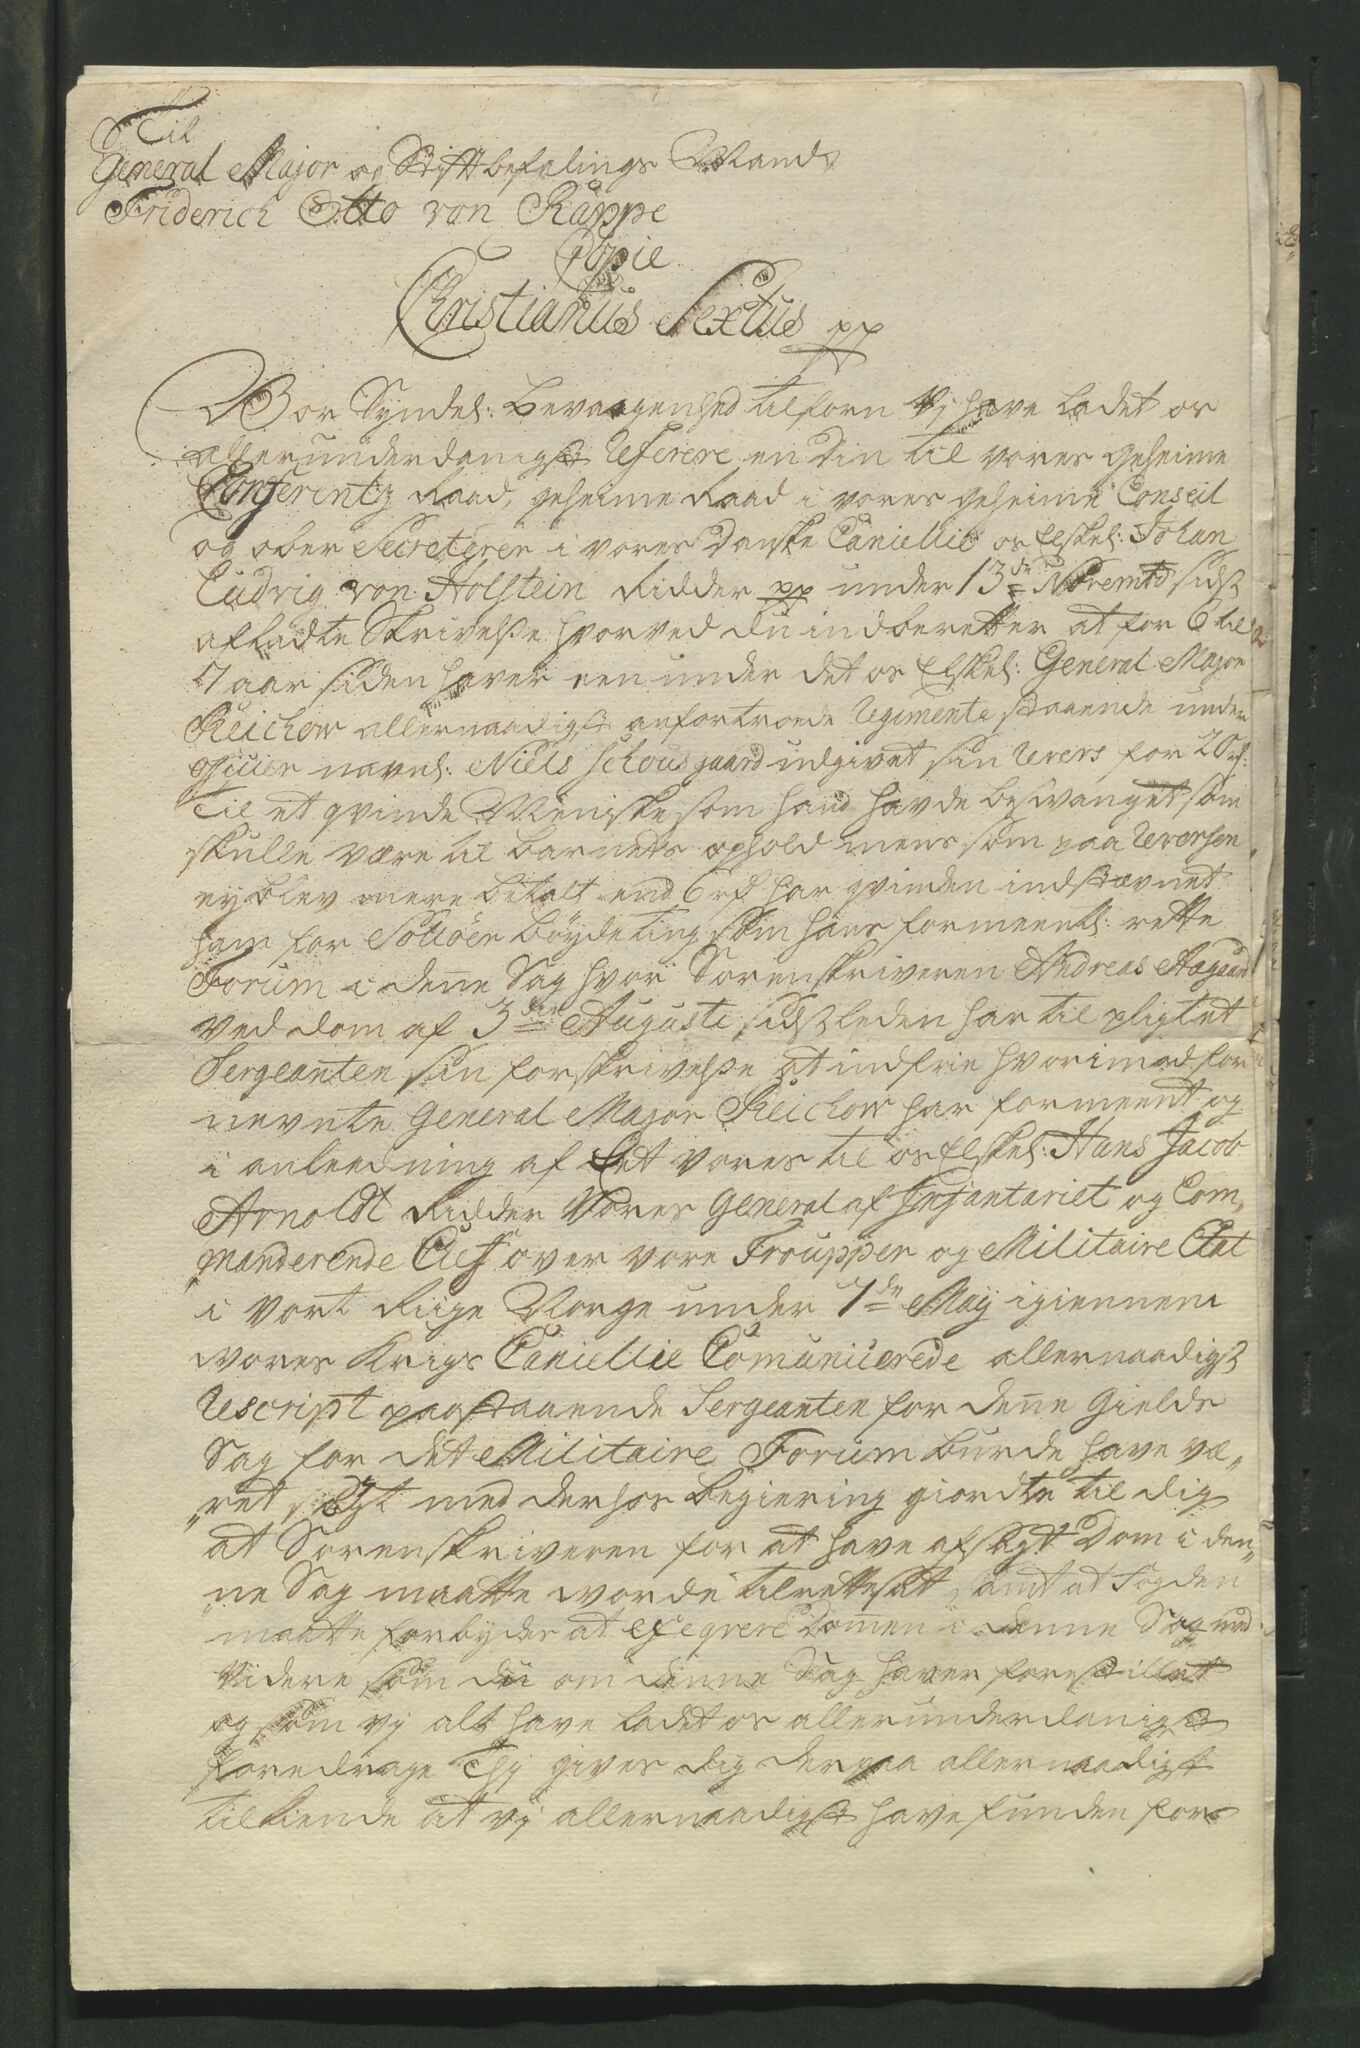 Til
General Major og Stiftbefalings Mand
Friderich Otto von Rappe
Copie
Christianus Sextus pp
Vor Synderl: Bevaagenhed tilforn Vj have ladet os
allerunderdanigst referere en din til vores geheime
Conferentz Raad, geheime Raad i vores geheime Conseil
og ober Secreterer i vores Danske Cancellie os Elskel: Johan
Ludvig von Holstein Ridder pp under 13de Novembr sidst
afladte Skrivelsse hvorved du indberetter at for 6 til
7 aar siden haver een under det os Elskel: General Major
Reichow allernaadigst anfortroede Regimente staaende under
officier navnl: Niels Schousgaard udgivet sin Revers for 20 rd:
til et qvinde Meniske som hand havde besvanget som
skulle være til barnets ophold mens som paa Reversen
ey blev mere betalt end 6 rd har qvinden indstævnet
ham for Solloer bøyde ting som hans formeentl: rette
Forum i denne Sag hvor Sorenskriveren Andreas Aagaard
ved dom af 3die Augusti sidstleden har til pligtet
Sergeanten sin forskrivelsse at indfrie hvorimod for
nevnte General Major Reichow har formeent og
i anleedning af Et vores til os Elskel: Hans Jacob
Arnoldt Ridder Vores General af Infantariet og Com„
„manderende Chef over vore Troupper og Militaire Etat
i vort Riige Norge under 7de Maij igiennem
vores Krigs Cancellie Comunicerede allernaadigst
Rescript paastaaende Sergeanten for denne Gields
Sag for det Militaire Forum burde have væ„
„ret søgt med derhos begiering giordte til dig
at Sorenskriveren for at have afsagt Dom i den„
„ne Sag maatte vorde tilrettesat samt at Fogden
maatte forbydes at exeqvere Domen i denne Sag med
Videre som du om denne Sag haver forestillet
og som vj alt have ladet os allerunderdanigst
foredrage Thj gives dig derpaa allernaadigst
tilkiende at vj allernaadigst have funden for„